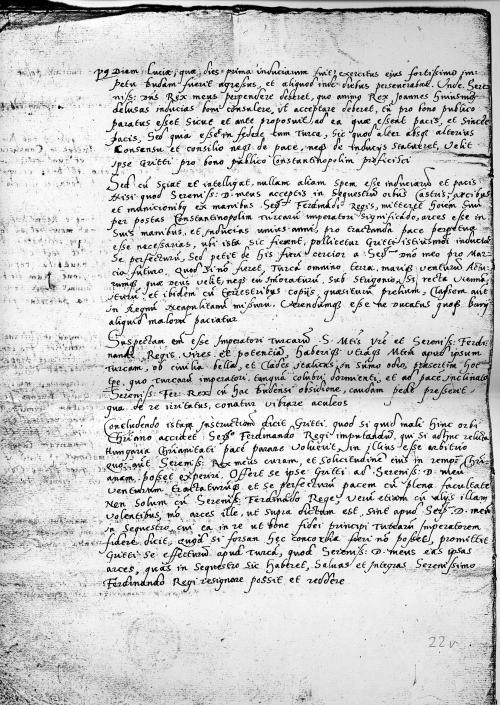 Diem Luciæ, quæ dies prima induciarum fuit, exercitus ejus fortissimo im
petu Budam fuerit agressus, et aliquot inde diebus perseverarint. Unde Sere
niss: Dns Rex meus perpendere deberet, quo animo Rex Joannes huiusmodi
delusas inducias boni consulere, et acceptare deberet, tn pro bono publico
paratus esset sicut et ante proposuit, ad ea quæ essent pacis, et sincere
pacis, sed quia esset in federe cum Turca, sic quod alter absque alterius
consensu et consilio neque de pace, neque de inducijs statueret, velit
ipse Gritti pro bono publico Constantinopolim proficisci
Sed cu sciat et intelligat, nullam aliam spem esse induciarum et pacis
nisi quod Sereniss: D. meus acceptis in sequestrum orbis castris, arcibus
et municionibus ex manibus Sermi Ferdinandi Regis, mitteret hoiem suum
per postas Constantinopolim Turcarum imperatori significando, arces esse in
suis manibus, et inducias unius anni, pro tractanda pace perpetua
esse necessarias, ubi ista sic fierent, pollicetur Gritti istiusmodi inducias
se perfecturum, sed petit de his fieri cercior a Sermo Dno meo pro Mar
cio futuro, Quod si non fieret, Turca omnino terra, marique venturum
quæ Deus velit, neque
et ibidem cu terrestribus copijs quæsiturum prelium, classem aut
in Regnum Neapolitanum missurum. Verendumque esse ne Ducatus quoque Bari
aliquid malorum paciatur
Suspectam em esse Imperatori Turcarum S. Mtis Vræ et Sereniss: Ferdi
nandi Regis, vires et potenciam, haberique utramque Mtem apud ipsum
Turcam, ob civilia bella, et clades Italicas, in sumo odio, presertim hoc
tpe, quo Turcarum imperatori, tanquam colubri dormienti, et ad pacem inclinato
Sereniss: Fer: Rex cu hac Budensi obsidione, caudam pede pressent
qua de re irritatus, conatur vibrare aculeos
Concludendo istam instructionem dicit Gritti, quod si quid mali hinc orbi
Chriano accidet Sermo Ferdinando Regi imputandum, qui si adhuc relicta
Hungaria Chrianitati pacem parare voluerit, in illius esse arbitrio
quoque aut Sereniss: Rex meus curam, et solicitudinem eius in rempub: Chri
anam posset experiri. Offert se ipse Gritti ad Sereniss: D. meum
venturum tractaturumque et se perfecturum pacem cu plena facultate
Non solum cu Sereniss: Ferdinando Rege, verum etiam cu alijs illam
volentibus, modo arces ille, ut supra dictum est, sint apud Sermum D. meum
in sequestro, cui ea in re ut bonæ fidei principi Turcarum Imperatorem
fidere dicit, Quod si forsan hæc concordia fieri non posset, promittit
Gritti se effecturum apud Turcam, quod Sereniss: D. meus eas ipsas
arces, quas in sequestro sic haberet, salvas et integras Serenissimo
Ferdinando Regi resignare possit et reddere
22v